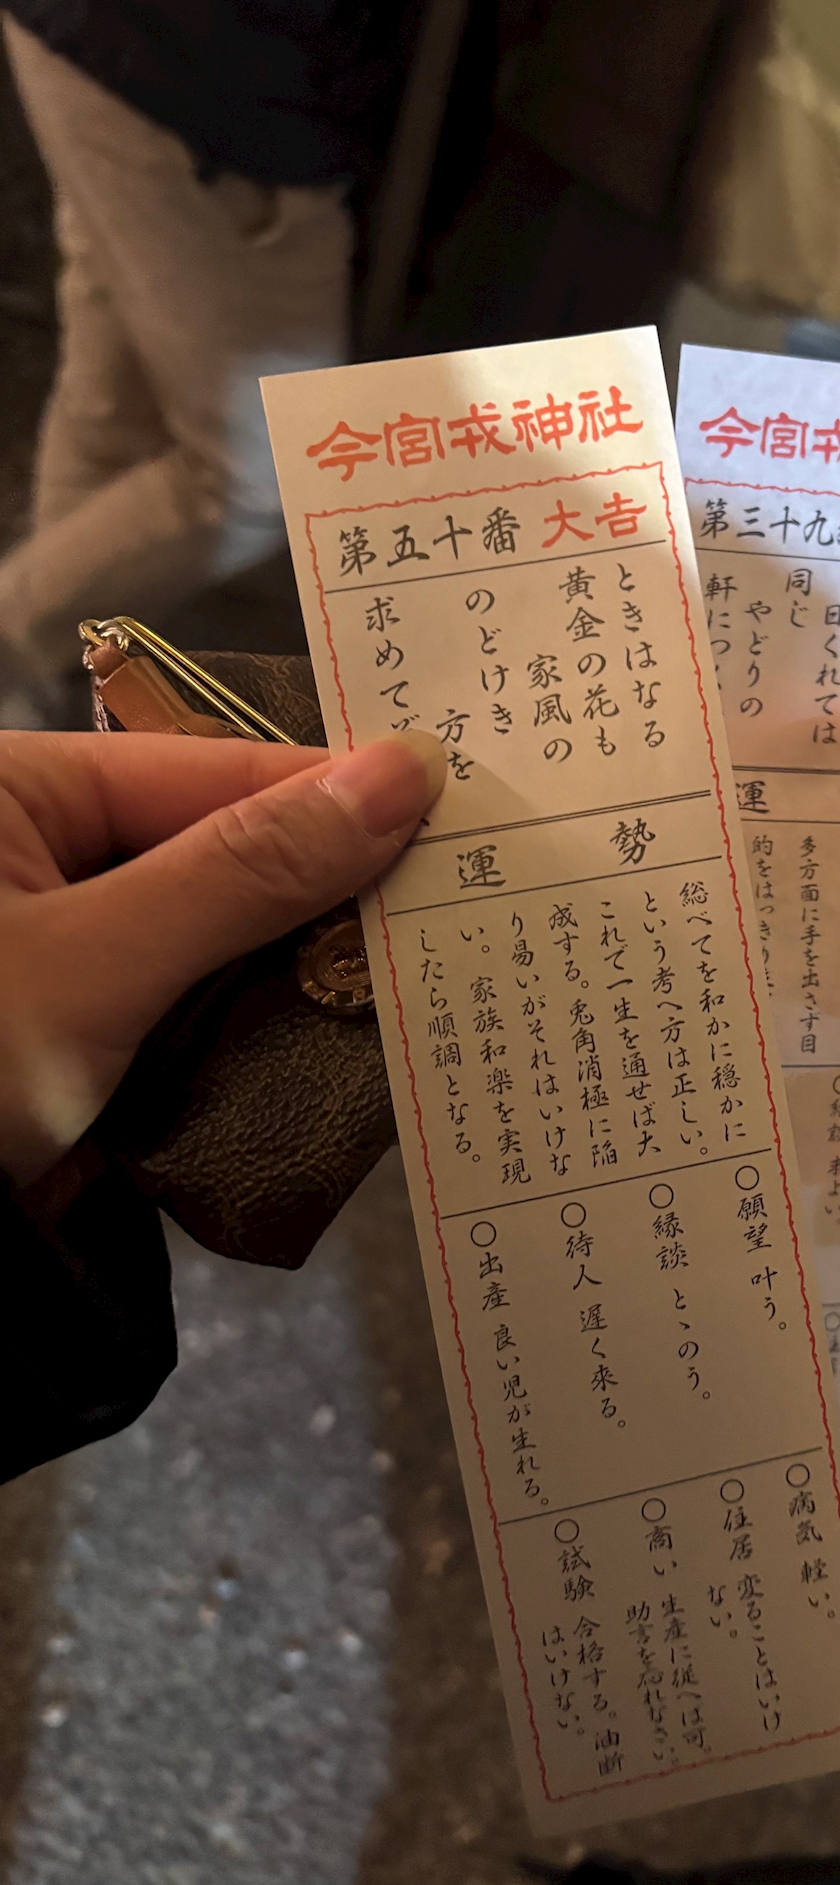 今宮戎神社
第五十番 大吉
ときはなる
黄金の花も
家風の
のどけき
方を
求めてぞ
運勢
総べてを和かに穏かに
という考へ方は正しい。
これで一生を通せば大
成する。兎角消極に陥
り易いがそれはいけな
い。家族和楽を実現
したら順調となる。
○願望 叶う。
○縁談 とゝのう。
○待人 遅く来る。
○出産 良い児が生れる。
○病気 軽い。
○住居 変ることはいけ
ない。
○商い 生産に従へば可。
助言を忘れなさい。
○試験 合格する。油断
はいけない。
今宮戎
第三十九
日くれては
同じ
やどりの
軒につ
運
多方面に手を出さず目
的をはっきり